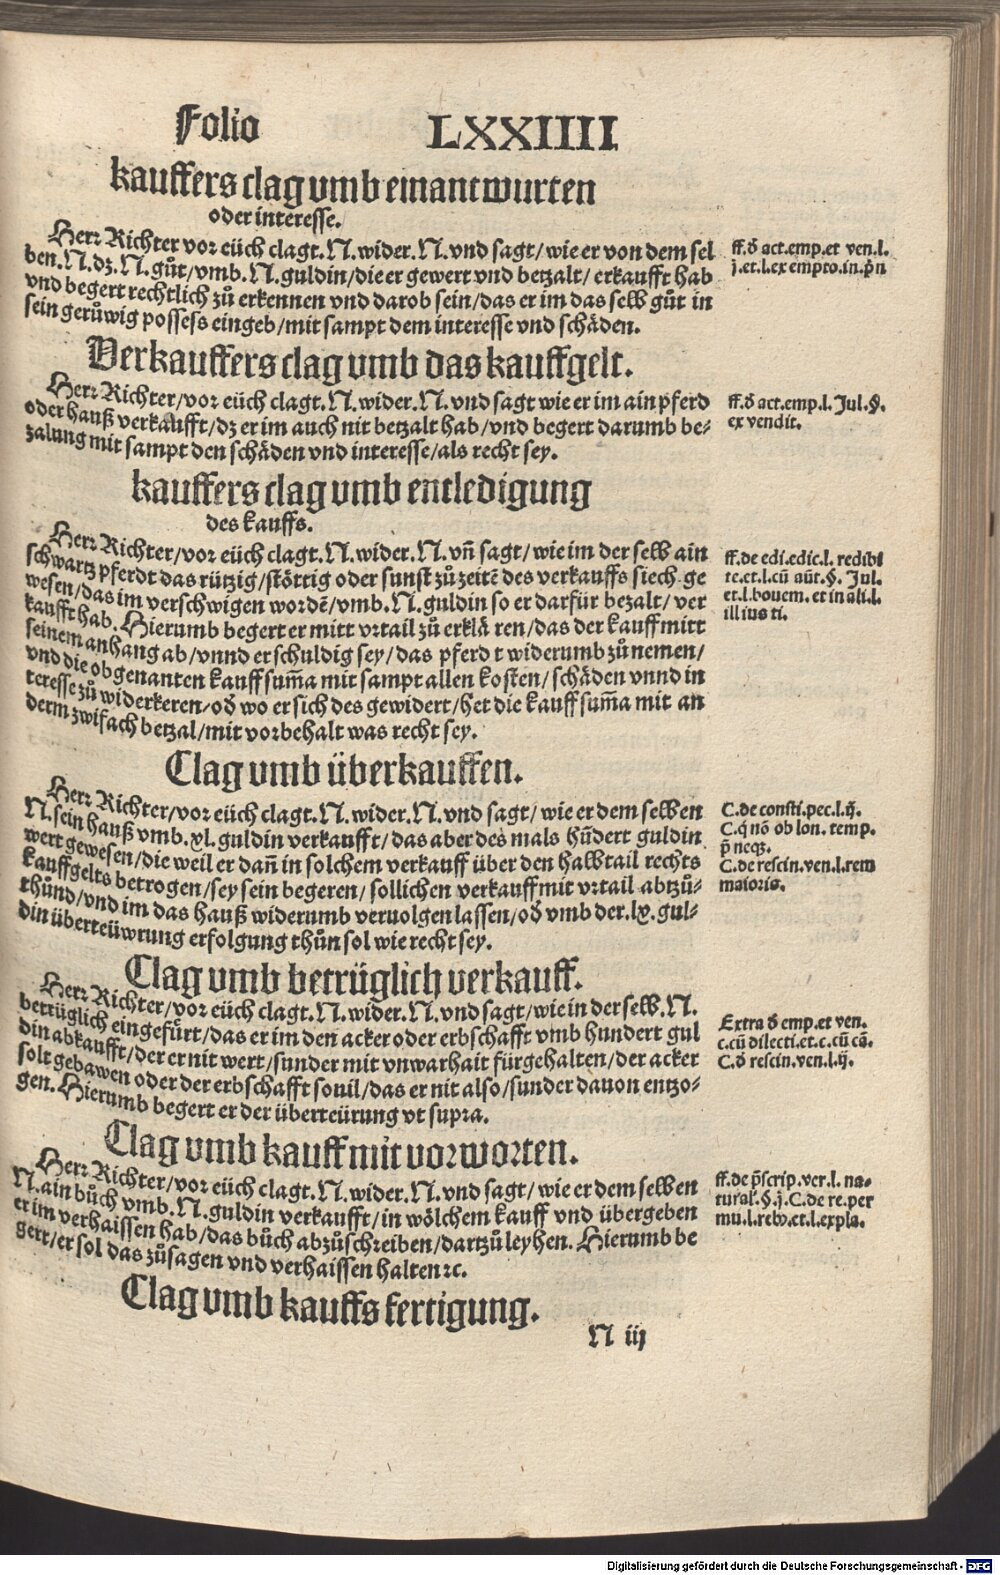 Folio LXXIIII
kauffers clag vmb einantwurten
oder interesse.
Herr Richter vor eüch clagt. N. wider. N. vnd sagt/ wie er von dem sel
ben. N. dz. N. gůt/ vmb. N. guldin/ die er gewert vnd betzalt/ erkaufft hab
vnd begert rechtlich zů erkennen vnd darob sein/ das er im das selb gůt in
sein gerůwig possess eingeb/ mit sampt dem interesse vnd schäden.
ff. ď act. emp. et ven. l.
j. et. l. ex empto. in. p̃n
Verkauffers clag vmb das kauffgelt.
Herr Richter/ vor eüch clagt. N. wider. N. vnd sagt wie er im ain pferd
oder hauß verkaufft/ dz er im auch nit betzalt hab/ vnd begert darumb be-
zalung mit sampt den schäden vnd interesse/ als recht sey.
ff. ď act. emp. l. Jul. §.
ex vendit.
kauffers clag vmb entledigung
des kauffs.
Herr Richter/ vor eüch clagt. N. wider. N. vñ sagt/ wie im der selb ain
schwartz pferdt das rützig/ stöttig oder sunst zů zeitẽ des verkauffs siech ge
wesen/ das im verschwigen wordẽ/ vmb. N. guldin so er darfür bezalt/ ver
kaufft hab. Hierumb begert er mitt vrtail zů erklä ren/ das der kauff mitt
seinem anhang ab/ vnnd er schuldig sey/ das pferd t widerumb zů nemen/
vnd die obgenanten kauff sum̃a mit sampt allen kosten/ schäden vnnd in
teresse zů widerkeren/ oď wo er sich des gewidert/ het die kauff sum̃a mit an
derm zwifach betzal/ mit vorbehalt was recht sey.
ff. de edi. edic. l. redibi
te. et. l. cũ aũt. §. Jul.
et. l. bouem. et in ali. l.
illius ti.
Clag vmb überkauffen.
Herr Richter/ vor eüch clagt. N. wider. N. vnd sagt/ wie er dem selben
N. sein hauß vmb. xl. guldin verkaufft/ das aber des mals hũdert guldin
wert gewesen/ die weil er dañ in solchem verkauff über den halbtail rechts
kauffgelts betrogen/ sey sein begeren/ sollichen verkauff mit vrtail abtzů-
thůnd/ vnd im das hauß widerumb veruolgen lassen/ oď vmb der. lx. gul-
din überteüwrung erfolgung thůn sol wie recht sey.
C. de consti. pec. l. ij.
C. q̃ nõ ob lon. temp.
p̃ neqz.
C. de rescin. ven. l. rem
maioris.
Clag vmb betrüglich verkauff.
Herr Richter/ vor eüch clagt. N. wider. N. vnd sagt/ wie in der selb. N.
betrüglich eingefürt/ das er im den acker oder erbschafft vmb hundert gul
din abkaufft/ der er nit wert/ sunder mit vnwarhait fürgehalten/ der acker
solt gebawen oder der erbschafft souil/ das er nit also/ sunder dauon entzo-
gen. Hierumb begert er der überteürung vt supra.
Extra ď emp. et ven.
c. cũ dilecti. et. c. cũ cã.
C. ď rescin. ven. l. ij.
Clag vmb kauff mit vorworten.
Herr Richter/ vor eüch clagt. N. wider. N. vnd sagt/ wie er dem selben
N. ain bůch vmb. N. guldin verkaufft/ in wölchem kauff vnd übergeben
er im verhaissen hab/ das bůch abzůschreiben/ dartzů leyhen. Hierumb be
gert/ er sol das zůsagen vnd verhaissen halten ⁊c.
ff. de p̃scrip. ver. l. na-
tural. §. j. C. de re. per
mu. l. reb9. et. l. expla.
Clag vmb kauffs fertigung.
N iij
Digitalisierung gefördert durch die Deutsche Forschungsgemeinschaft - DFG